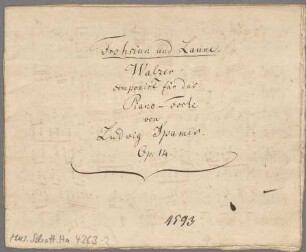 Frohsinn und Laune.
Walzer
componirt für das
Piano-Forte
von
Ludwig Spamer.
Op. 14.
1593
Mus. Schott. Ha 4263-2